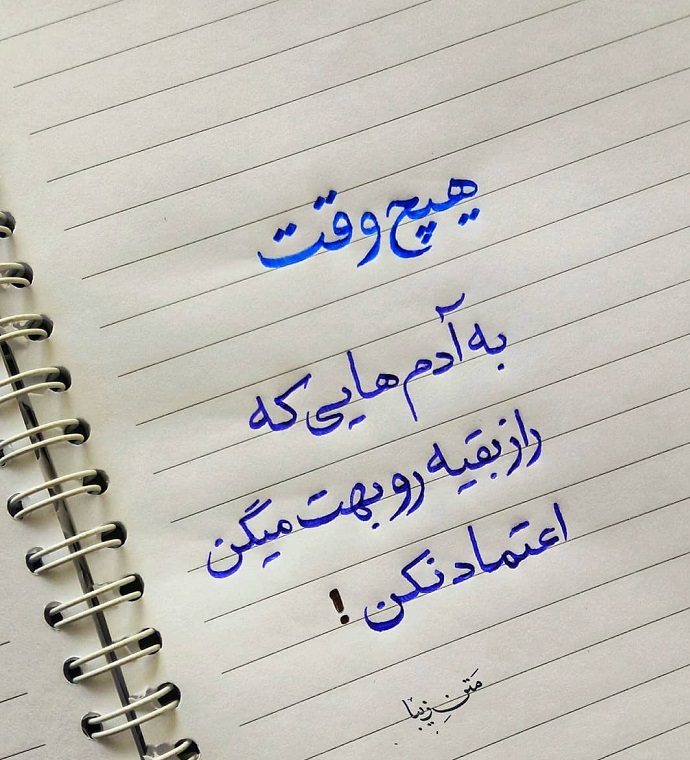 هیچ وقت
به آدم هایی که
راز بقیه رو بهت میگن
اعتماد نکن !
متن زیبا